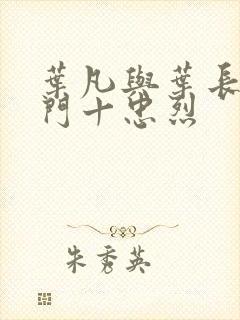 葉凡與葉長
門十忠烈
朱秀英